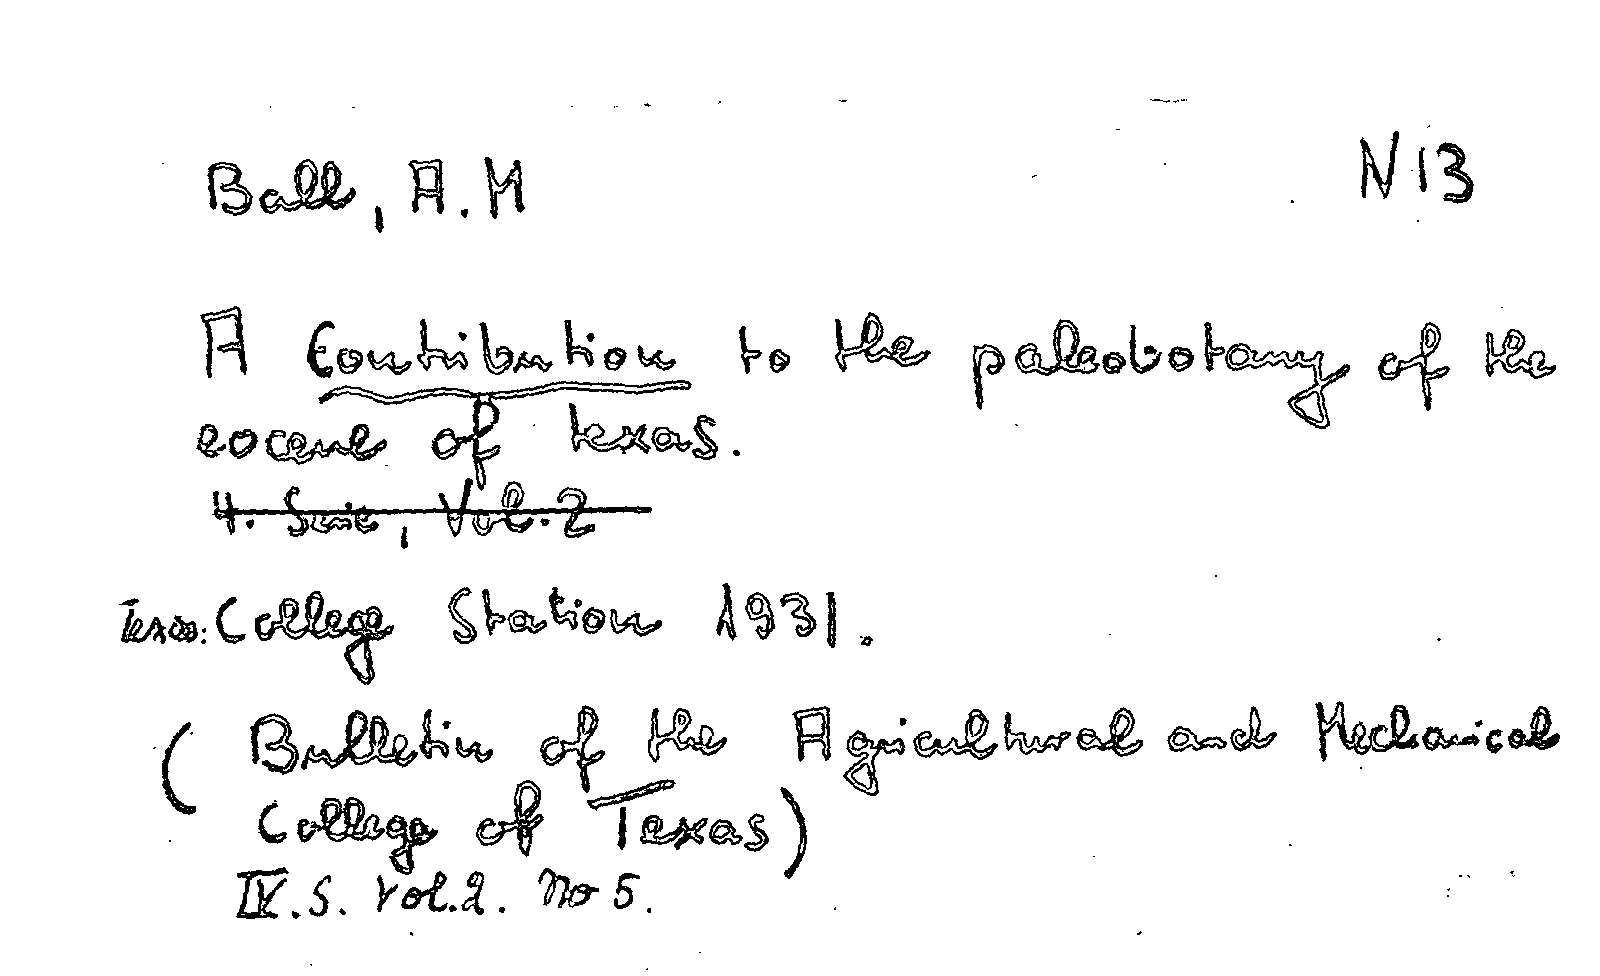 Ball, A.M
N 13
A Contribution to the paleobotany of the
eocene of texas.
4. Serie, Vol. 2
Texas: College Station 1931.
( Bulletin of the Agricultural and Mechanical
College of Texas)
IV. S. Vol. 2. No 5.